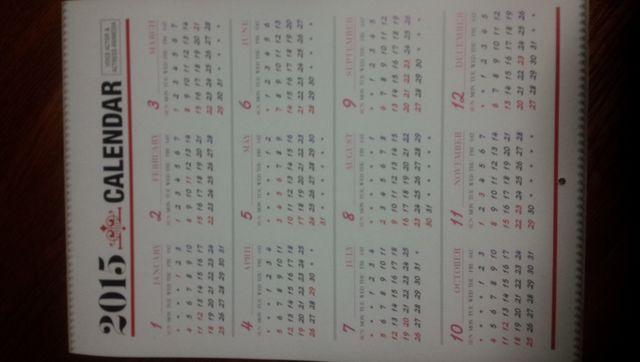 2015 CALENDAR
VOICE ACTOR &
1 JANUARY
SUN MON TUE WED THU FRI SAT
1 2 3
4 5 6 7 8 9 10
11 12 13 14 15 16 17
18 19 20 21 22 23 24
25 26 27 28 29 30 31
2 FEBRUARY
SUN MON TUE WED THU FRI SAT
1 2 3 4 5 6 7
8 9 10 11 12 13 14
15 16 17 18 19 20 21
22 23 24 25 26 27 28
3 MARCH
SUN MON TUE WED THU FRI SAT
1 2 3 4 5 6 7
8 9 10 11 12 13 14
15 16 17 18 19 20 21
22 23 24 25 26 27 28
29 30 31
4 APRIL
SUN MON TUE WED THU FRI SAT
1 2 3 4
5 6 7 8 9 10 11
12 13 14 15 16 17 18
19 20 21 22 23 24 25
26 27 28 29 30
5 MAY
SUN MON TUE WED THU FRI SAT
1 2
3 4 5 6 7 8 9
10 11 12 13 14 15 16
17 18 19 20 21 22 23
24 25 26 27 28 29 30
31
6 JUNE
SUN MON TUE WED THU FRI SAT
1 2 3 4 5 6
7 8 9 10 11 12 13
14 15 16 17 18 19 20
21 22 23 24 25 26 27
28 29 30
7 JULY
SUN MON TUE WED THU FRI SAT
1 2 3 4
5 6 7 8 9 10 11
12 13 14 15 16 17 18
19 20 21 22 23 24 25
26 27 28 29 30 31
8 AUGUST
SUN MON TUE WED THU FRI SAT
1
2 3 4 5 6 7 8
9 10 11 12 13 14 15
16 17 18 19 20 21 22
23 24 25 26 27 28 29
30 31
9 SEPTEMBER
SUN MON TUE WED THU FRI SAT
1 2 3 4 5
6 7 8 9 10 11 12
13 14 15 16 17 18 19
20 21 22 23 24 25 26
27 28 29 30
10 OCTOBER
SUN MON TUE WED THU FRI SAT
1 2 3
4 5 6 7 8 9 10
11 12 13 14 15 16 17
18 19 20 21 22 23 24
25 26 27 28 29 30 31
11 NOVEMBER
SUN MON TUE WED THU FRI SAT
1 2 3 4 5 6 7
8 9 10 11 12 13 14
15 16 17 18 19 20 21
22 23 24 25 26 27 28
29 30
12 DECEMBER
SUN MON TUE WED THU FRI SAT
1 2 3 4 5
6 7 8 9 10 11 12
13 14 15 16 17 18 19
20 21 22 23 24 25 26
27 28 29 30 31